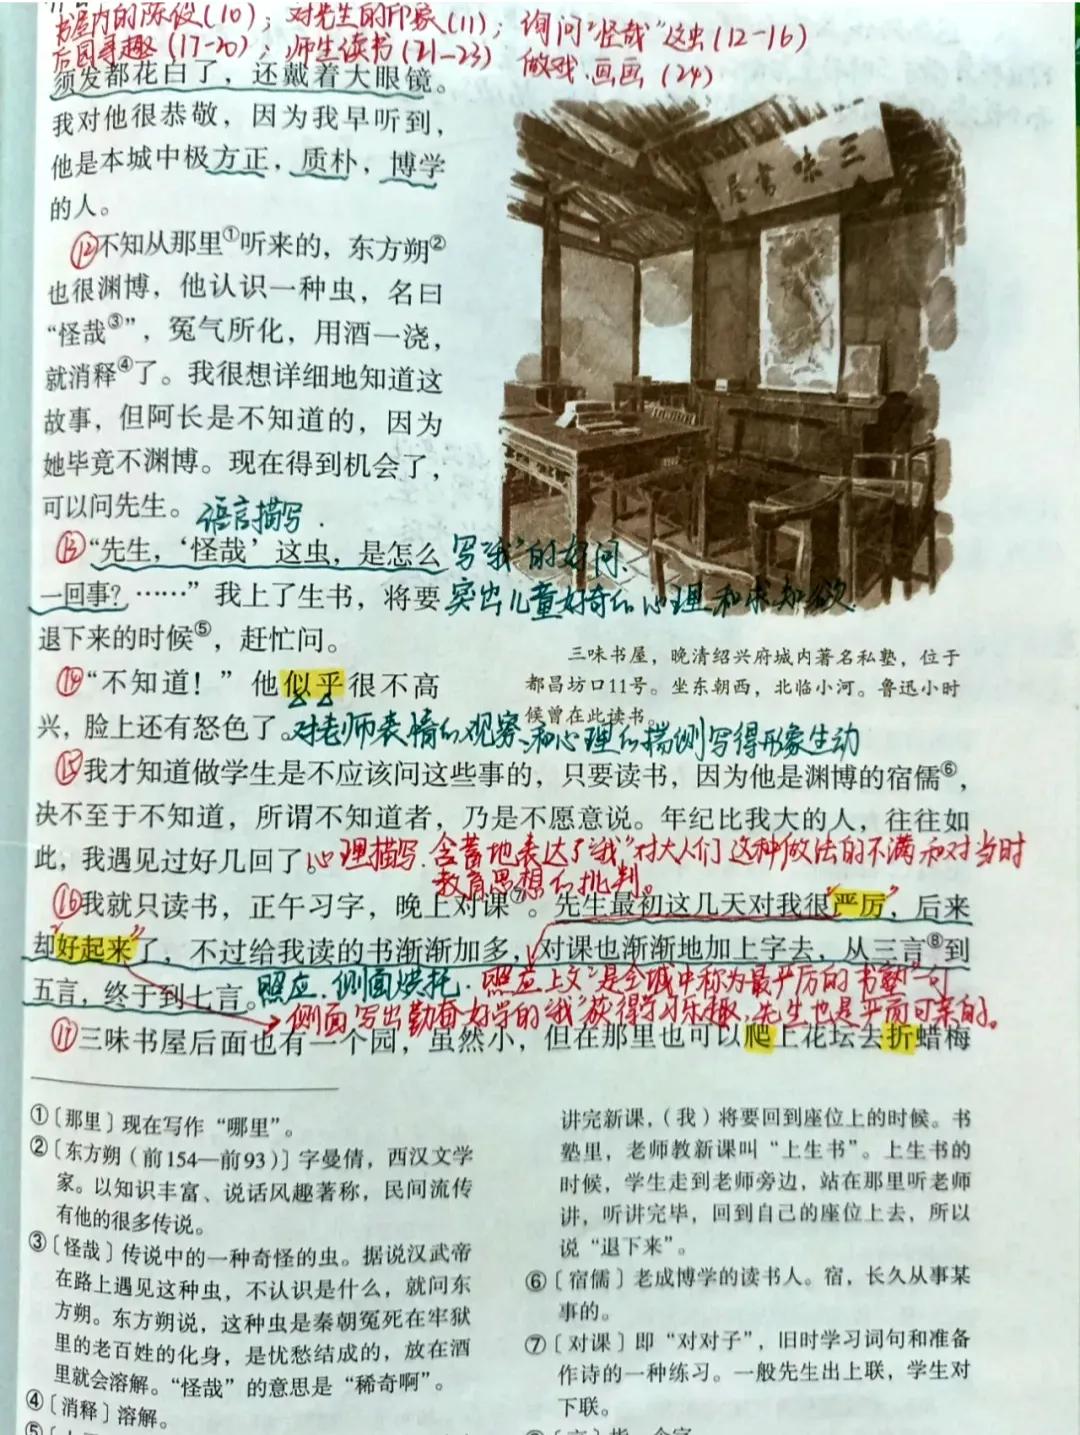 书屋内的陈设(10)；对先生的印象(11)；询问“怪哉”这虫(12-16)
后园寻趣(17-20)；师生读书(21-23) 做戏、画画(24)
须发都花白了，还戴着大眼镜。
我对他很恭敬，因为我早听到，
他是本城中极方正，质朴，博学
的人。
三味书屋
⑫不知从那里①听来的，东方朔②
也很渊博，他认识一种虫，名曰
“怪哉③”，冤气所化，用酒一浇，
就消释④了。我很想详细地知道这
故事，但阿长是不知道的，因为
她毕竟不渊博。现在得到机会了，
可以问先生。语言描写.
⑬“先生，‘怪哉’这虫，是怎么 写“我”的好问、
一回事？……”我上了生书，将要 突出儿童好奇的心理和求知欲.
退下来的时候⑤，赶忙问。
三味书屋，晚清绍兴府城内著名私塾，位于
都昌坊口11号。坐东朝西，北临小河。鲁迅小时
候曾在此读书。
⑭“不知道！”他似乎很不高
兴，脸上还有怒色了。对老师表情的观察、和心理的揣测写得形象生动
⑮我才知道做学生是不应该问这些事的，只要读书，因为他是渊博的宿儒⑥，
决不至于不知道，所谓不知道者，乃是不愿意说。年纪比我大的人，往往如
此，我遇见过好几回了。心理描写.含蓄地表达了“我”对大人们这种做法的不满和对当时
教育思想的批判。
⑯我就只读书，正午习字，晚上对课⑦。先生最初这几天对我很“严厉”，后来
却“好起来”了，不过给我读的书渐渐加多，对课也渐渐地加上字去，从三言⑧到
五言，终于到七言。照应.侧面烘托. 照应上文“是全城中称为最严厉的书塾”句
侧面写出勤奋好学的“我”获得学习乐趣、先生也是严而可亲的。
⑰三味书屋后面也有一个园，虽然小，但在那里也可以爬上花坛去折蜡梅
①〔那里〕现在写作“哪里”。
②〔东方朔（前154—前93）〕字曼倩，西汉文学
家。以知识丰富、说话风趣著称，民间流传
有他的很多传说。
③〔怪哉〕传说中的一种奇怪的虫。据说汉武帝
在路上遇见这种虫，不认识是什么，就问东
方朔。东方朔说，这种虫是秦朝冤死在牢狱
里的老百姓的化身，是忧愁结成的，放在酒
里就会溶解。“怪哉”的意思是“稀奇啊”。
④〔消释〕溶解。
讲完新课，（我）将要回到座位上的时候。书
塾里，老师教新课叫“上生书”。上生书的
时候，学生走到老师旁边，站在那里听老师
讲，听讲完毕，回到自己的座位上去，所以
说“退下来”。
⑥〔宿儒〕老成博学的读书人。宿，长久从事某
事的。
⑦〔对课〕即“对对子”，旧时学习词句和准备
作诗的一种练习。一般先生出上联，学生对
下联。